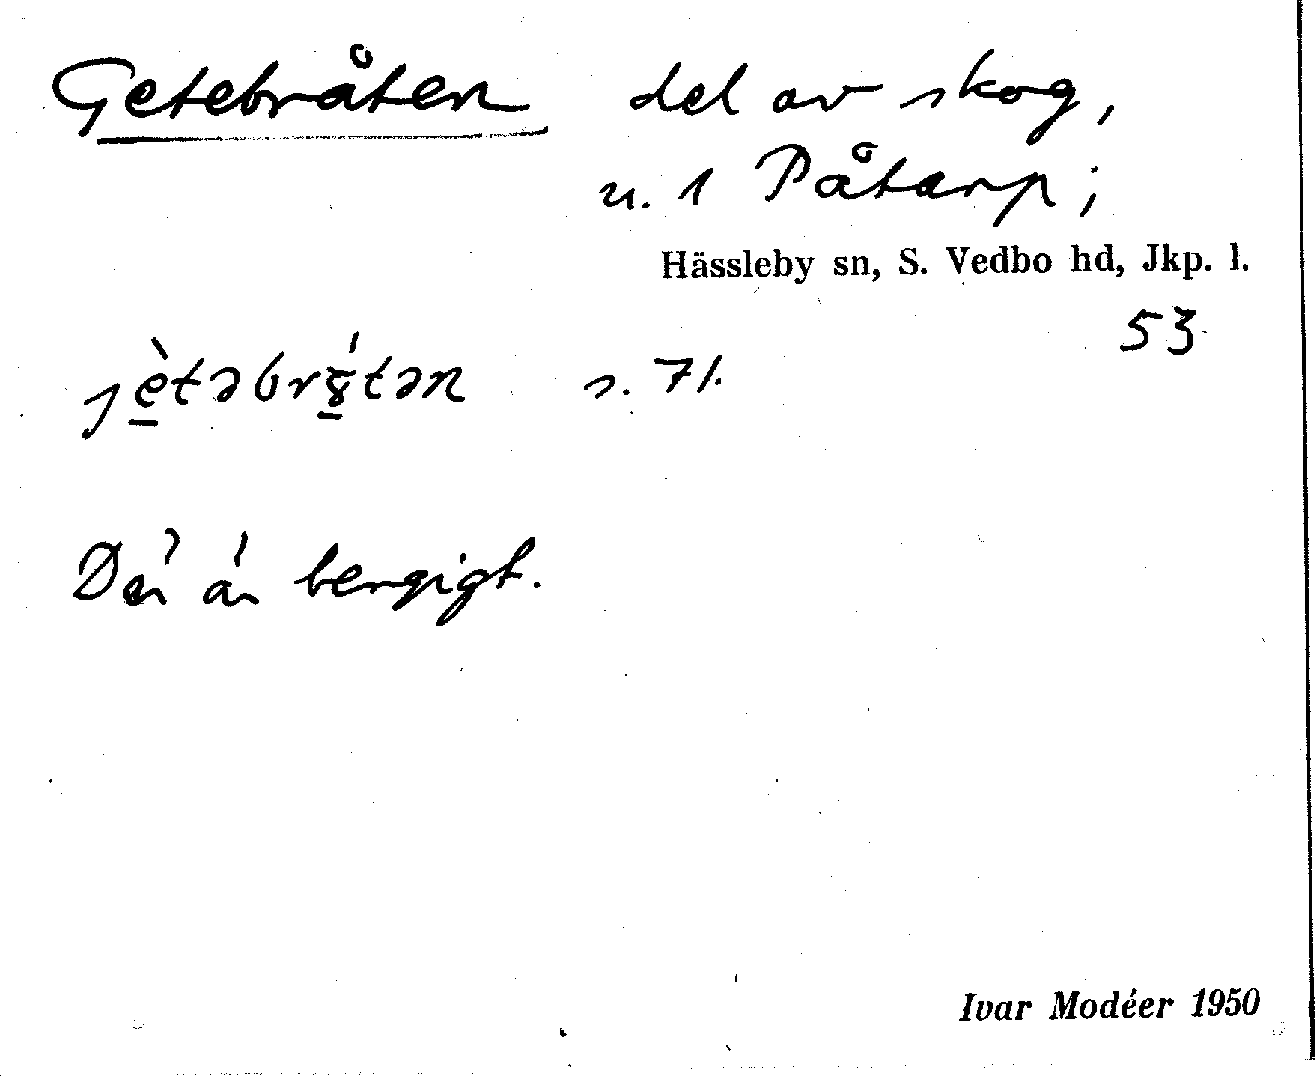 Getebråten del av skog,
u. 1 Påtarp;
Hässleby sn, S. Vedbo hd, Jkp. l.
53
jè̠təbrɣ̠́tən s. 71.
Den är bergigt.
Ivar Modéer 1950